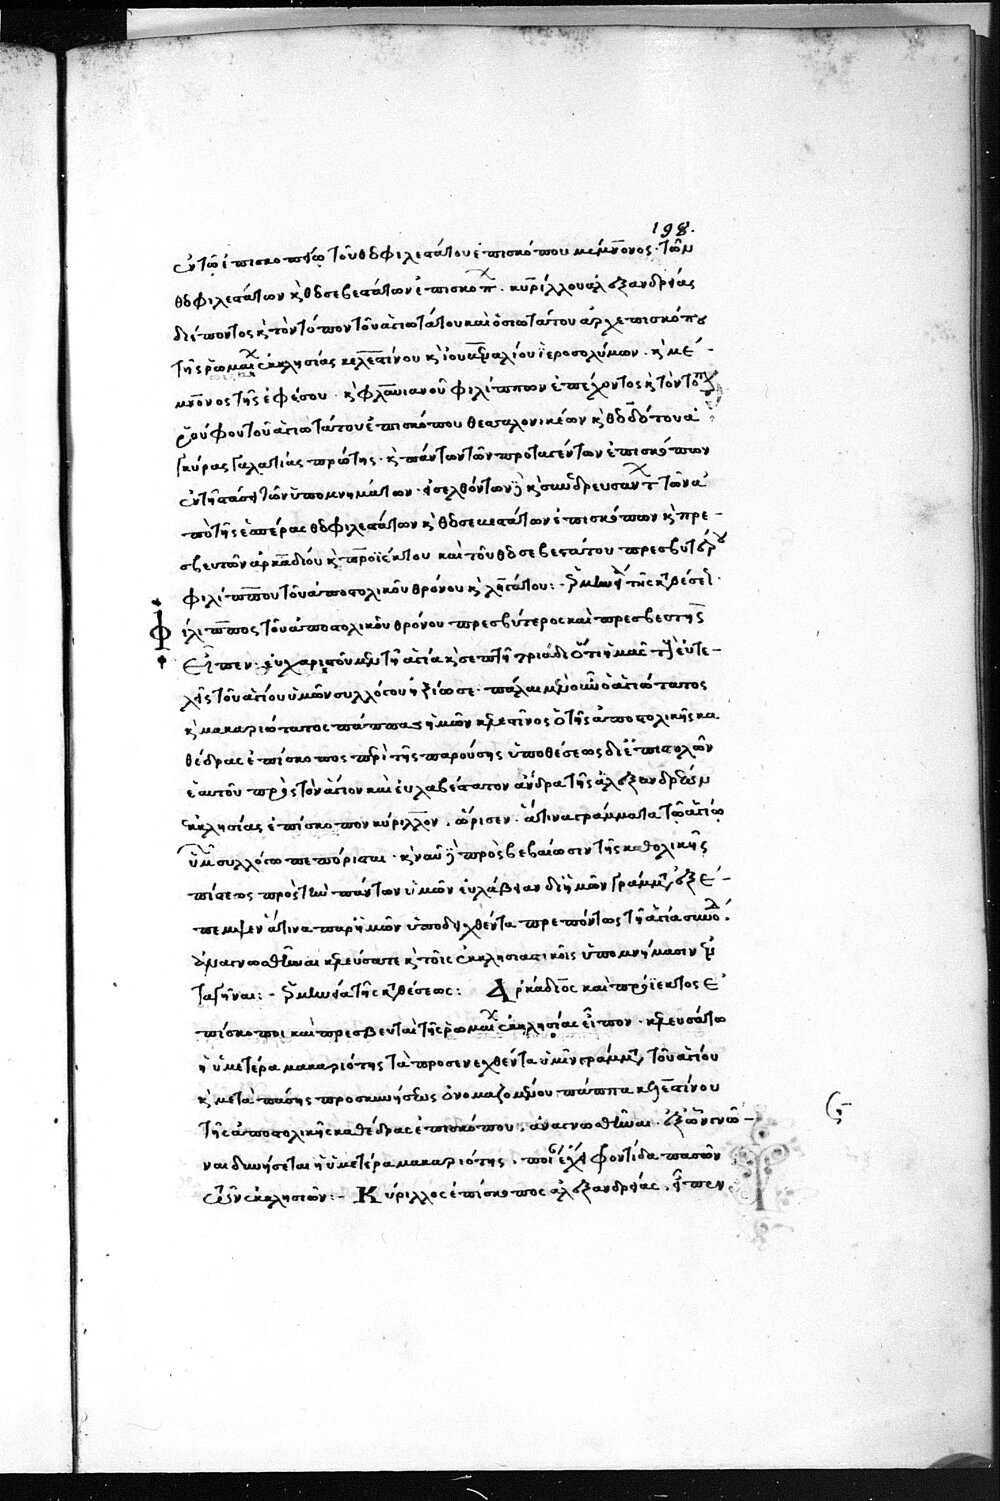 198.
ἐν τῷ ἐπισκοπείῳ τοῦ θεοφιλεστάτου ἐπισκόπου μέμνονος· τῶν
θεοφιλεστάτων κ θεοσεβεστάτων ἐπισκοπ. κυρίλλου ἀλεξανδρείας
διέποντος κ τὸν τόπον τοῦ ἁγιωτάτου καὶ ὁσιωτάτου ἀρχιεπισκόπου
τῆς ῥωμαι ἐκκλησίας κελεστίνου κ ἰουβεναλίου ἱεροσολύμων· κ μέ-
μνονος τῆς ἐφέσου· κ φλαυιανοῦ φιλίππων ἐπέχοντος κ τὸν τοπ
ῥούφου τοῦ ἁγιωτάτου ἐπισκόπου θεσσαλονικέων κ θεοδότου ἀ
γκύρας γαλατίας πρώτης· κ πάντων τῶν προταγέντων ἐπισκόπων
ἐν τῇ τάξει τῶν ὑπομνημάτων· εἰσελθόντων κ συνεδρευσάντ τῶν ἀ
πὸ τῆς ἑσπέρας θεοφιλεστάτων κ θεοσεβεστάτων ἐπισκόπων κ πρε-
σβευτῶν ἀρκαδίου κ προϊέκτου καὶ τοῦ θεοσεβεστάτου πρεσβυτέρου
φιλίππου τοῦ ἀποστολικοῦ θρόνου κ λητάτου:- τῆς κ θέσει·
Φ ίλιππος τοῦ ἀποστολικοῦ θρόνου πρεσβύτερος καὶ πρεσβευτής
εἶπεν· εὐχαριστοῦμεν τῇ ἁγίᾳ κ σεπτῇ τριάδι ὅτι ἡμᾶς εὐτε-
λεῖς τοῦ ἁγίου ὑμῶν συλλόγου ἠξίωσε· πάλαι μὲν οὖν ὁ ἁγιώτατος
κ μακαριώτατος πάππας ἡμῶν κελεστῖνος ὁ τῆς ἀποστολικῆς κα
θέδρας ἐπίσκοπος περὶ τῆς παρούσης ὑποθέσεως δι ἐπιστολῶν
ἑαυτοῦ πρὸς τὸν ἅγιον καὶ εὐλαβέστατον ἄνδρα τῆς ἀλεξανδρέων
ἐκκλησίας ἐπίσκοπον κύριλλον, ὥρισεν· ἅτινα γράμματα τῷ ἁγίῳ
ὑμῶν συλλόγῳ πεπόρισται· κ νῦν πρὸς βεβαίωσιν τῆς καθολικῆς
πίστεως πρὸς τὴν πάντων ὑμῶν εὐλάβειαν δι ἡμῶν γράμματα ἐξέ-
πεμψεν ἅτινα παρ ἡμῶν ὑποδειχθέντα πρεπόντως τῇ ἁγίᾳ συνόδ
ἀναγνωσθῆναι κελεύσατε κ τοῖς ἐκκλησιαστικοῖς ὑπομνήμασιν
ταγῆναι:- τῆς κ θέσεως: Ἀρκάδιος καὶ προϊεκτος ἐ
πίσκοποι καὶ πρεσβευταὶ τῆς ῥωμαι ἐκκλησίας εἶπον· κελευσάτω
ἡ ὑμετέρα μακαριότης τὰ προσενεχθέντα ὑμῖν γράμματα τοῦ ἁγίου
κ μετὰ πάσης προσκυνήσεως ὀνομαζομένου πάππα κελεστίνου
τῆς ἀποστολικῆς καθέδρας ἐπισκόπου, ἀναγνωσθῆναι· ἐξ ὧν γνῶ-
ναι δυνήσεται ἡ ὑμετέρα μακαριότης, ποί ἔχει φροντίδα πασῶν
τῶν ἐκκλησιῶν:- Κύριλλος ἐπίσκοπος ἀλεξανδρείας, εἶπεν,